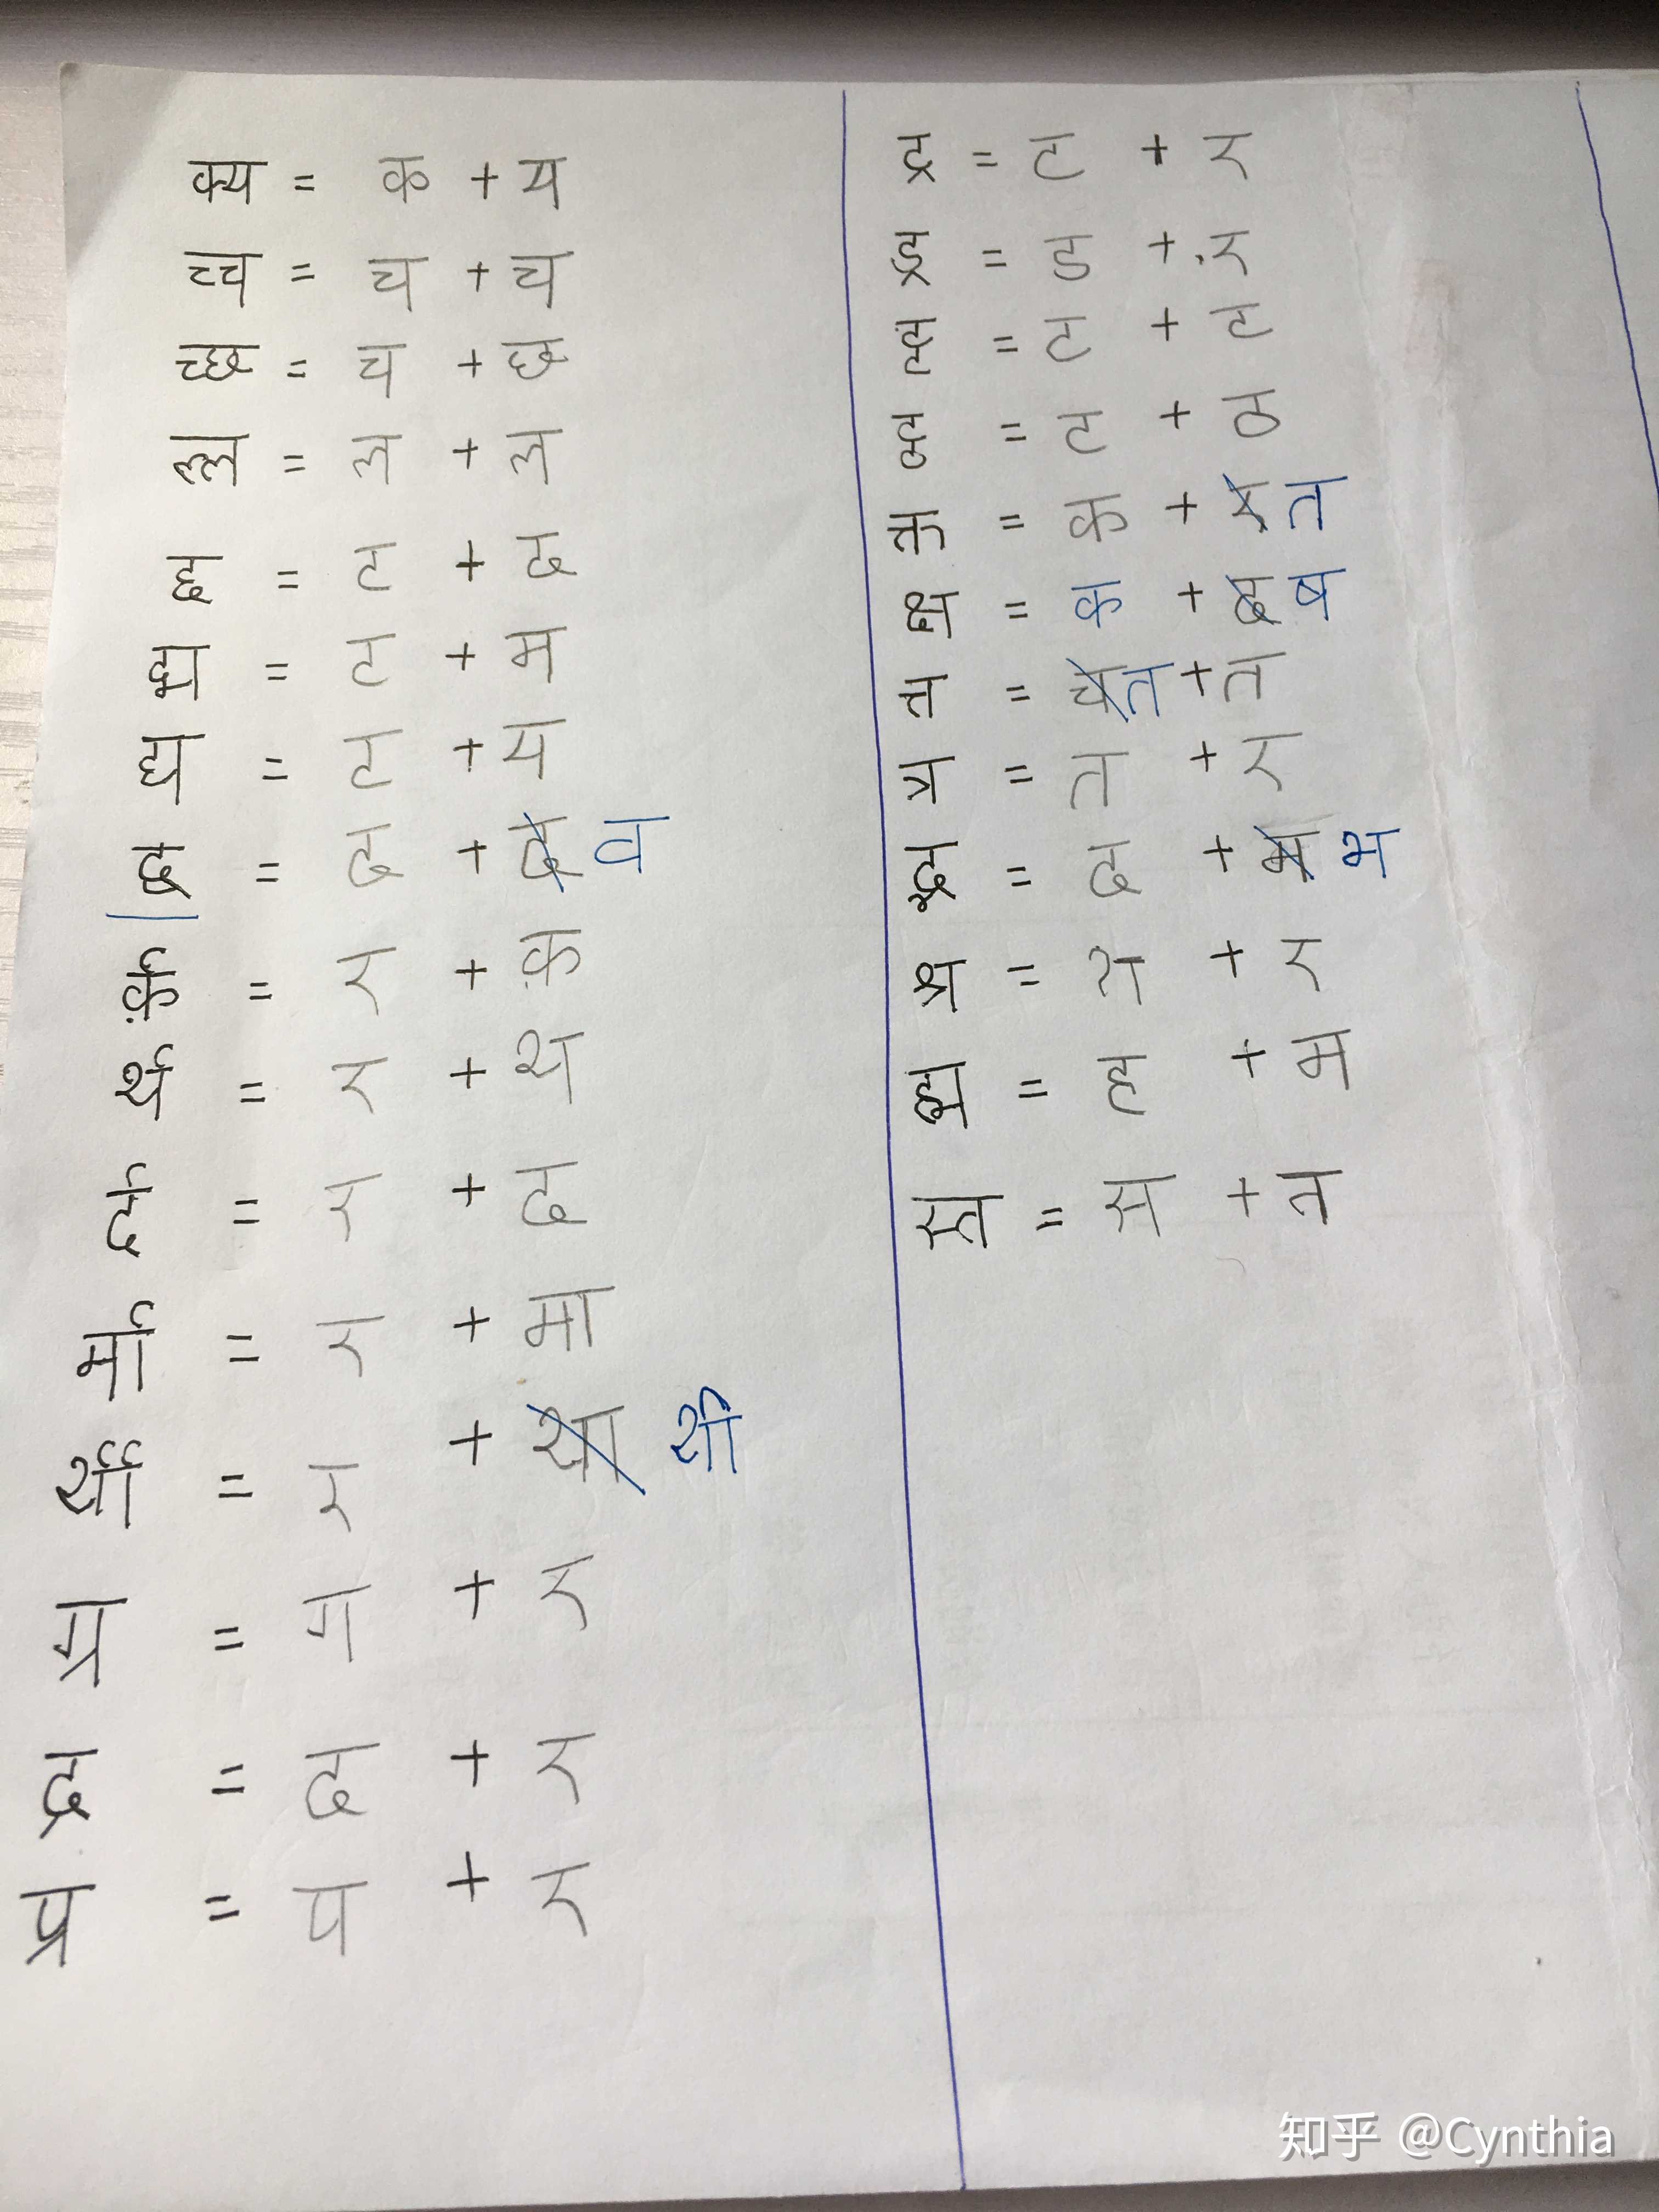 क्य = क + य
च्च = च + च
च्छ = च + छ
ल्ल = ल + ल
द्ध = ट + द
द्म = ट + म
द्य = ट + य
द्व = द + व
र्क़ = र + क़
र्थ = र + थ
र्द = र + द
र्मा = र + मा
र्थी = र + था थी
ग्र = ग + र
द्र = द + र
प्र = प + र
ट्र = ट + र
ड्र = ड + र
ट्ट = ट + ट
ट्ठ = ट + ठ
क्त = क + र त
क्ष = क + ष
त्त = च त + त
त्र = त + र
द्भ = द + म भ
श्र = श + र
ह्म = ह + म
स्त = स + त
知乎 @Cynthia